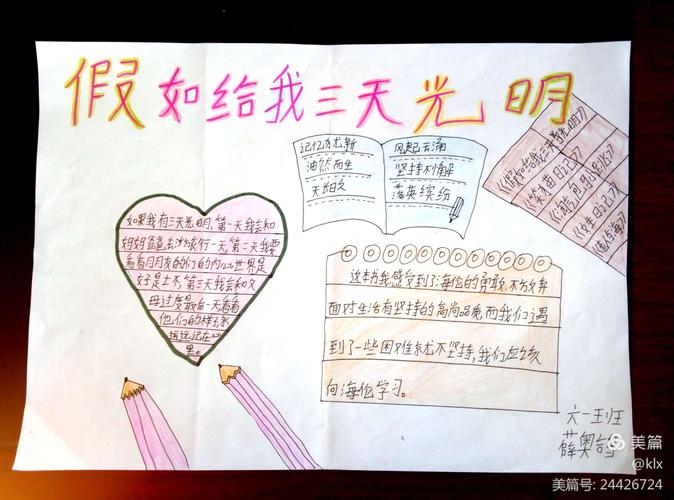 假如给我三天光明
记忆犹新
油然而生
天长日久
风起云涌
坚持不懈
落英缤纷
《假如给我三天光明》
《笑猫日记》
如果我有三天光明,第一天我会和
妈妈爸爸去旅行一天,第二天我要
看看月月友的们的内心世界是
好是土不,第三天我会和父
母过度最后一天看看
他们的样子永
远记在心
里。
这本书我感觉到了海伦的勇敢、不放弃
面对生活有坚持的高尚品质而我们遇
到了一些困难就不坚持,我们应该
向海伦学习。
六一班
薛奥
美篇
@klx
美篇号: 24426724